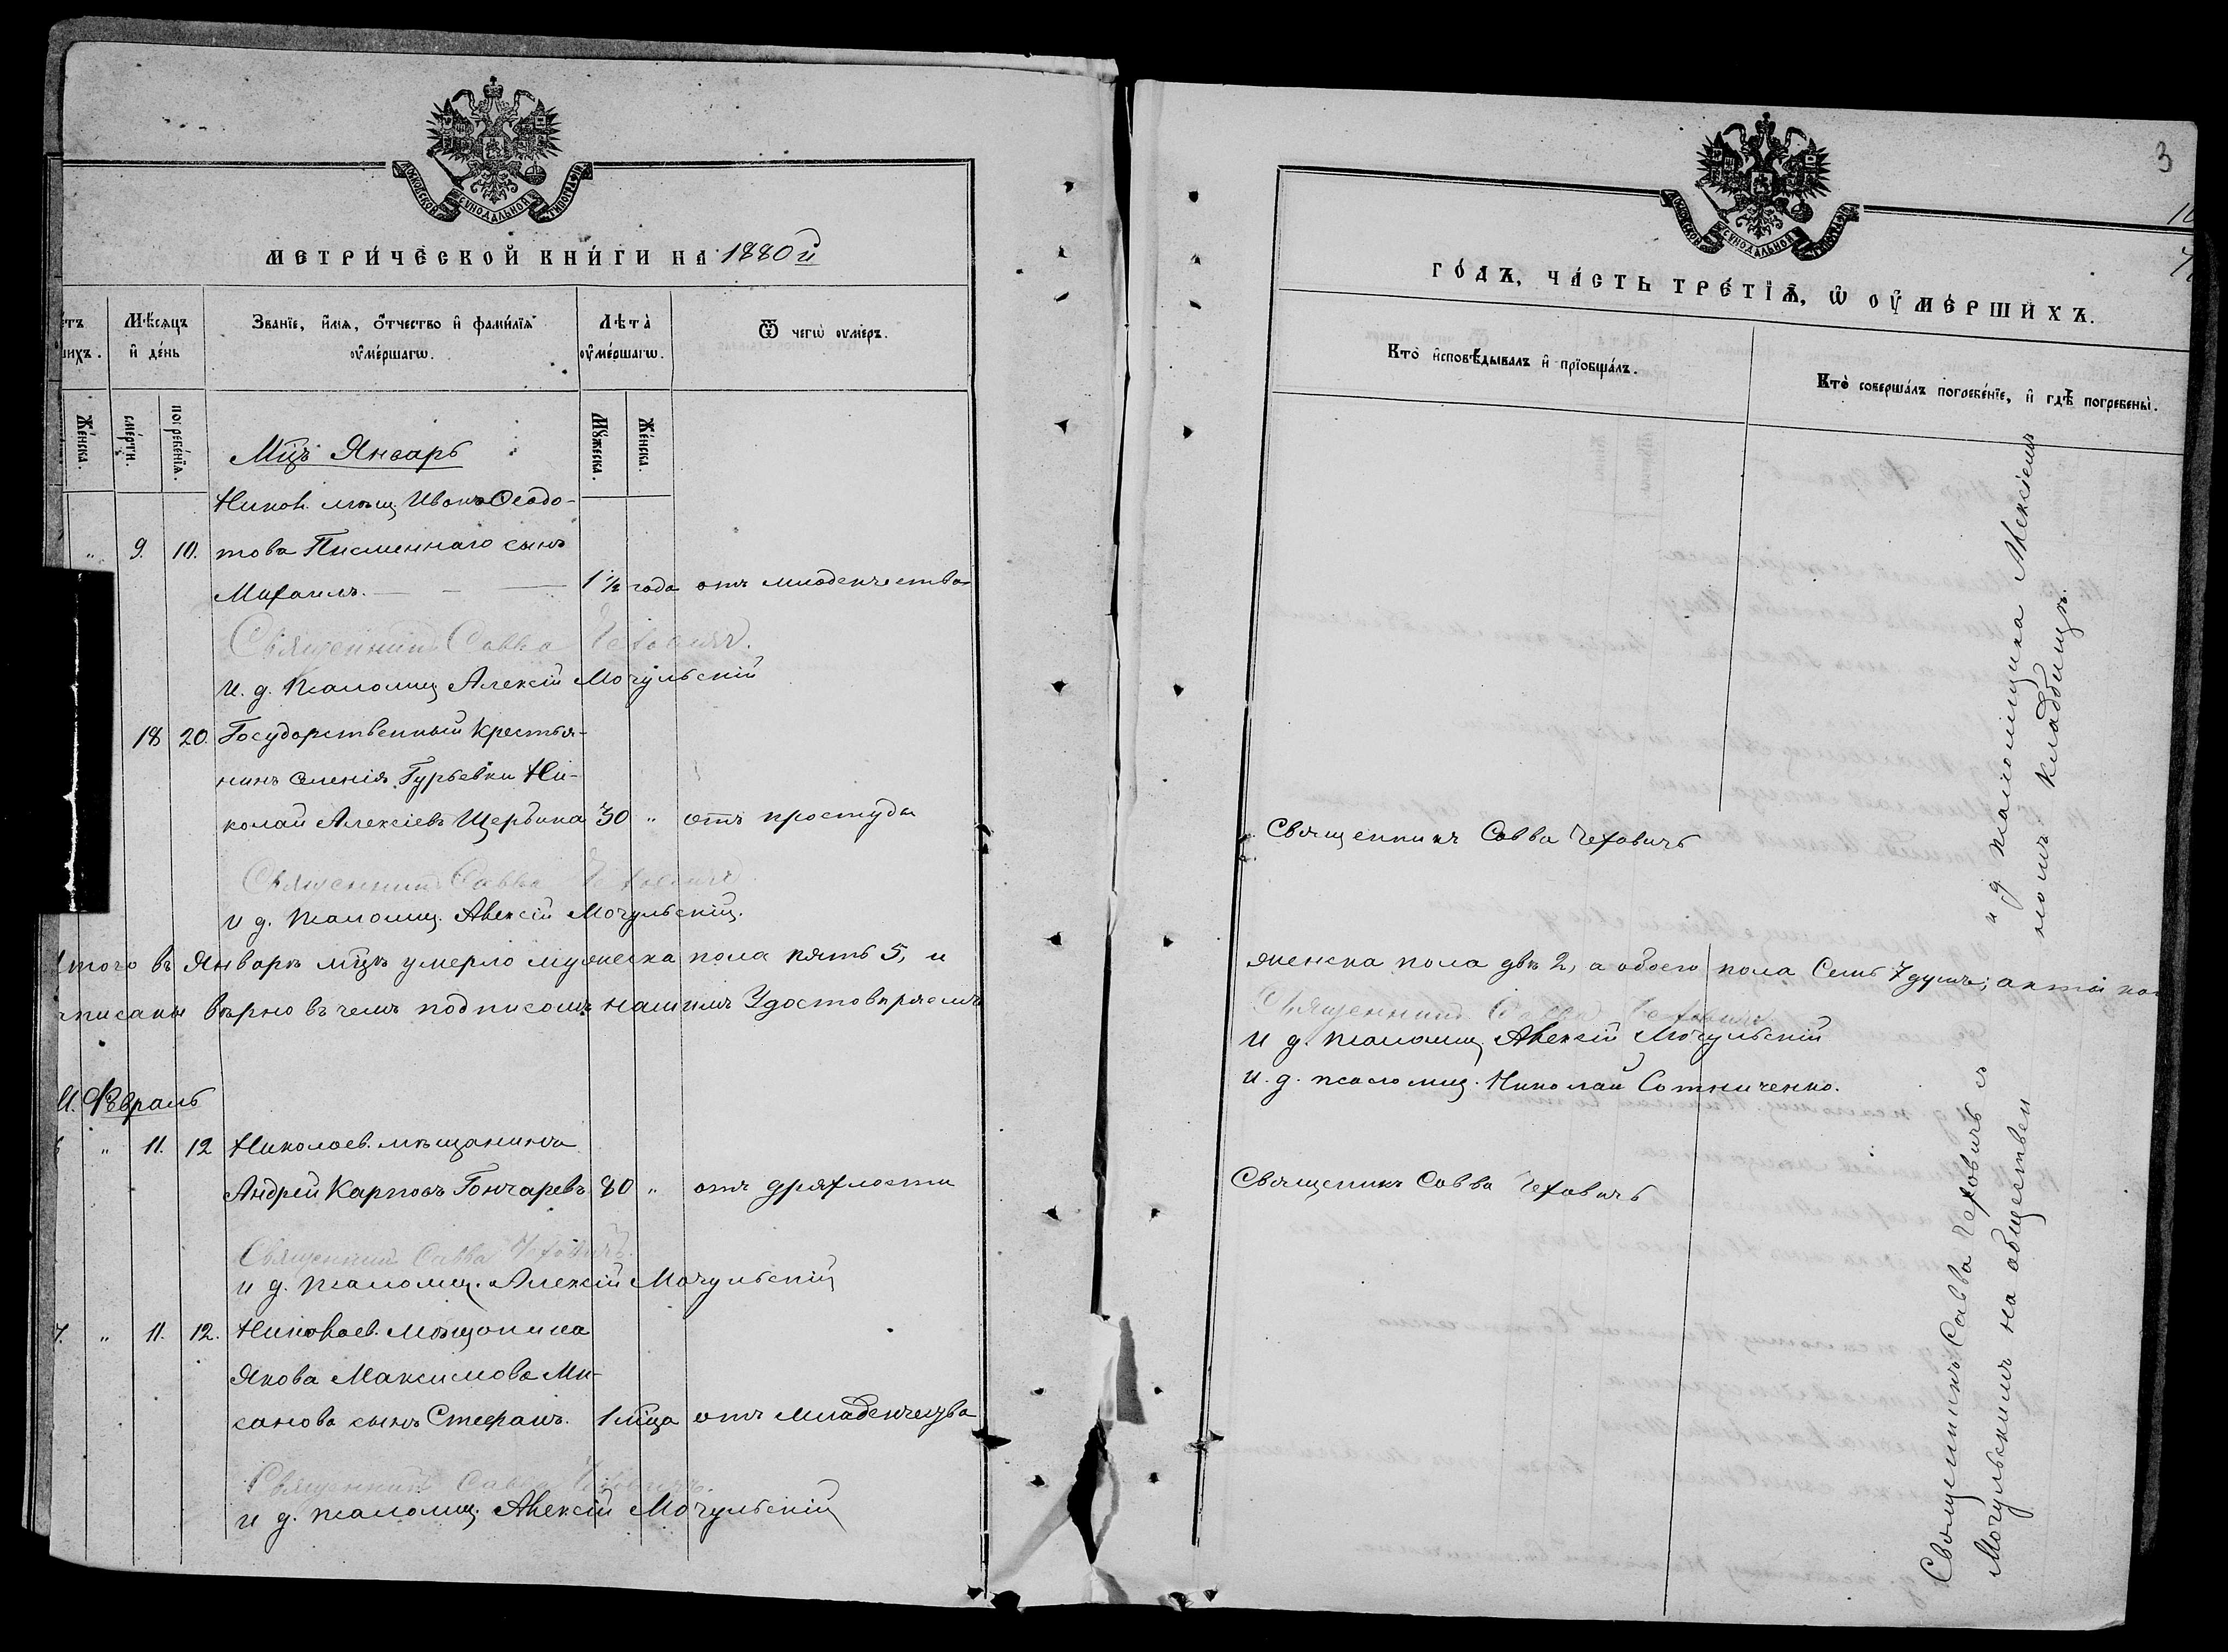 МОСКОВСКОЙ СѴНОДАЛЬНОЙ ТѴПОГРАФІИ
МЕТРИ́ЧЕСКОЙ КНИ́ГИ НА 1880й
Мѣсяцъ и де́нь
Зва́нїе, и҆́мѧ, ѻ҆́тчество и҆ фами́лїѧ ᲂу҆ме́ршагѡ.
Лѣта̀ ᲂу҆ме́ршагѡ.
Ѿ чегѡ̀ ᲂу҆́меръ.
Же́нска.
сме́рти.
погребе́нїѧ.
Мꙋ́жеска.
Же́нска.
Мцъ Январь
Никол. мѣщ. Ивана Ѳеодо-
" 9. 10. това Писменнаго сынъ
Михаилъ. 1 ½ года отъ младенчества
Священникъ Савва Чеховичъ.
И. д. псаломщ Алексій Мочульскій
18 20. Государственный крестья-
нинъ селенія Гурьевки Ни-
колай Алексіевъ Щербина 30 " отъ простуды
Священникъ Савва Чеховичъ
и д. псаломщ. Алексій Мочульскій.
Итого въ Январѣ мцѣ умерло мужеска пола пять 5, и
писаны вѣрно въ чемъ подписомъ нашимъ Удостовѣряемъ
М. Февраль
" 11. 12 Николаев. мѣщанинъ
Андрей Карповъ Гончаревъ 80 " отъ дряхлости
Священникъ Савва Чеховичъ.
и д. псаломщ. Алексій Мочульскій
7. " 11. 12. Николаев. мѣщанина
Якова Максимова Ми-
санова сынъ Стефанъ. 1 мца отъ младенчества
Священникъ Савва Чеховичъ.
и д. псаломщ. Алексій Мочульскій
3
МОСКОВСКОЙ СѴНОДАЛЬНОЙ ТѴПОГРАФІИ
ГО́ДЪ, ЧА́СТЬ ТРЕ́ТІѦ, Ѡ ОУ҆МЕ́РШИХЪ.
Кто̀ и҆сповѣ́дывалъ и҆ прїобща́лъ.
Кто̀ соверша́лъ погребе́нїе, и҆ гдѣ̀ погребены̀.
Священникъ Савва Чеховичъ
женска пола двѣ 2, а обоего пола Семь 7 душъ; акты
Священникъ Савва Чеховичъ
И д. псаломщ. Алексій Мочульскій
И. д. псаломщ. Николай Сотниченко.
Священникъ Савва Чеховичъ
Священникъ Савва Чеховичъ съ и д псаломщика Алексіемъ
Мочульскимъ на обществен номъ кладбищѣ.